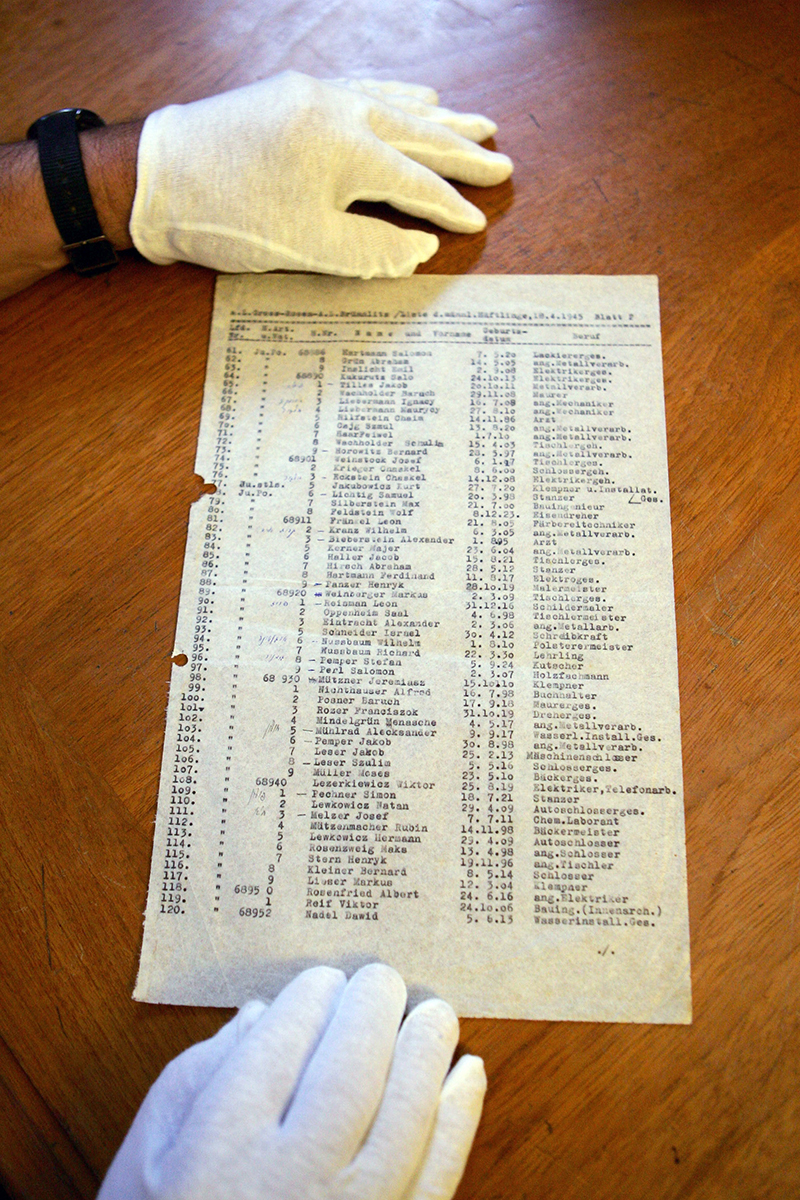 K.L. Gross-Rosen-A.L.Brünnlitz /Liste d.männl.Häftlinge,18.4.1945 Blatt 2
Lfd. H.Art. H.Nr. N a m e und Vorname Geburts- Beruf
Nr. u.Nat. datum
61. Ju.Po. 68886 Hartmann Salomon 7. 5.20 Lackiererges.
62. " 8 Grün Abraham ang.Metallverarb.
63. " 9 Inslicht Emil 2. 9.08 Elektrikerges.
64. " 68890 Kukurutz Salo 24.10.13 Elektrikerges.
65. " 1 - Tilles Jakob 20.10.11 Metallverarb.
66. " 2 Wachholder Baruch 29.11.08 Maurer
67. " 3 - Liebermann Ignacy 16. 7.08 ang.Mechaniker
68. " 4 Liebermann Maurycy 27. 8.10 ang.Mechaniker
69. " 5 Hilfstein Chaim 14.11.86 Arzt
70. " 6 Gajg Szmul 13. 8.20 ang.Metallverarb.
71. " 7 Haar Feiwel 1.7.10 ang.Metallverarb.
72. " 8 Wachholder Schulim 15. 4.03 Tischlergeh.
73. " 9 - Horowitz Bernard 28. 3.97 ang.Metallverarb.
74. " 68901 Weinstock Josef 6. 1.27 Tischlerges.
75. " 2 Krieger Chaskel 8. 6.00 Schlossergeh.
76. " 3 - Eckstein Chaskel 14.12.08 Elektrikergeh.
77. Ju.stls. 5 Jakubowicz Kurt 27. 7.20 Klempner u.Installat.
Ju.Po. 6 - Lichtig Samuel 20. 3.98 Stanzer Ges.
79. " 7 Silberstein Max 21. 7.00 Bauingenieur
80. " 8 Feldstein Wolf 8.12.23. Eisendreher
81. " 68911 Fränkel Leon 21. 8.05 Färbereitechniker
82. " 2 - Kranz Wilhelm 6. 3.05 ang.Metallverarb.
83. " 3 - Bieberstein Alexander 1. 895 Arzt
84. " 5 Kerner Majer 23. 6.04 ang.Metallverarb.
85. " 6 Haller Jacob 15. 8.21 Tischlerges.
86. " 7 Hirsch Abraham 28. 5.12 Stanzer
87. " 8 Hartmann Ferdinand 11. 8.17 Elektroges.
88. " 9 - Panzer Henryk 28.10.19 Malermeister
89. " 68920 - Weinberger Markus 2. 3.09 Tischlerges.
90. " 1 - Reisman Leon 31.12.16 Schildermaler
91. " 2 Oppenheim Saal 4. 6.98 Tischlermeister
92. " 3 Eintracht Alexander 2. 3.06 ang.Metallarb.
93. " 5 Schneider Israel 30. 4.12 Schreibkraft
94. " 6 - Nussbaum Wilhelm 1. 8.10 Polsterermeister
95. " 7 Nussbaum Richard 22. 3.30 Lehrling
96. " 8 - Pemper Stefan 5. 9.24 Kutscher
97. " 9 - Perl Salomon 2. 3.07 Holzfachmann
98. " 68 930 - Mützner Jeremiasz 15.10.10 Klempner
99. " 1 Nichthauser Alfred 16. 7.98 Buchhalter
100. " 2 Posner Baruch 17. 9.18 Maurerges.
101. " 3 Rozer Franciszok 31.10.19 Dreherges.
102. " 4 Mindelgrün Menasche 4. 5.17 ang.Metallverarb.
103. " 5 - Mühlrad Alecksander 9. 9.17 Wasserl.Install.Ges.
104. " 6 - Pemper Jakob 30. 8.98 ang.Metallverarb.
105. " 7 Leser Jakob 25. 2.13 Maschinenschlosser
106. " 8 - Leser Szulim 5. 5.16 Schlosserges.
107. " 9 Müller Moses 23. 5.10 Bäckerges.
108. " 68940 Lezerkiewicz Wiktor 25. 8.19 Elektriker,Telefonarb.
109. " 1 - Pechner Simon 18. 7.21 Stanzer
110. " 2 Lewkowicz Natan 29. 4.09 Autoschlosserges.
111. " 3 - Melzer Josef 7. 7.11 Chem.Laborant
112. " 4 Mützenmacher Rubin 14.11.98 Bäckermeister
113. " 5 Lewkowicz Hermann 29. 4.09 Autoschlosser
114. " 6 Rosenzweig Maks 13. 4.98 ang.Schlosser
115. " 7 Stern Henryk 19.11.96 ang.Tischler
116. " 8 Kleiner Bernard 8. 5.14 Schlosser
117. " 9 Lieser Markus 12. 3.04 Klempner
118. " 6895 0 Rosenfried Albert 24. 6.16 ang.Elektriker
119. " 1 Reif Viktor 24.10.06 Bauing.(Innenarch.)
120. " 68952 Nadel Dawid 5. 6.13 Wasserinstall.Ges.
./.